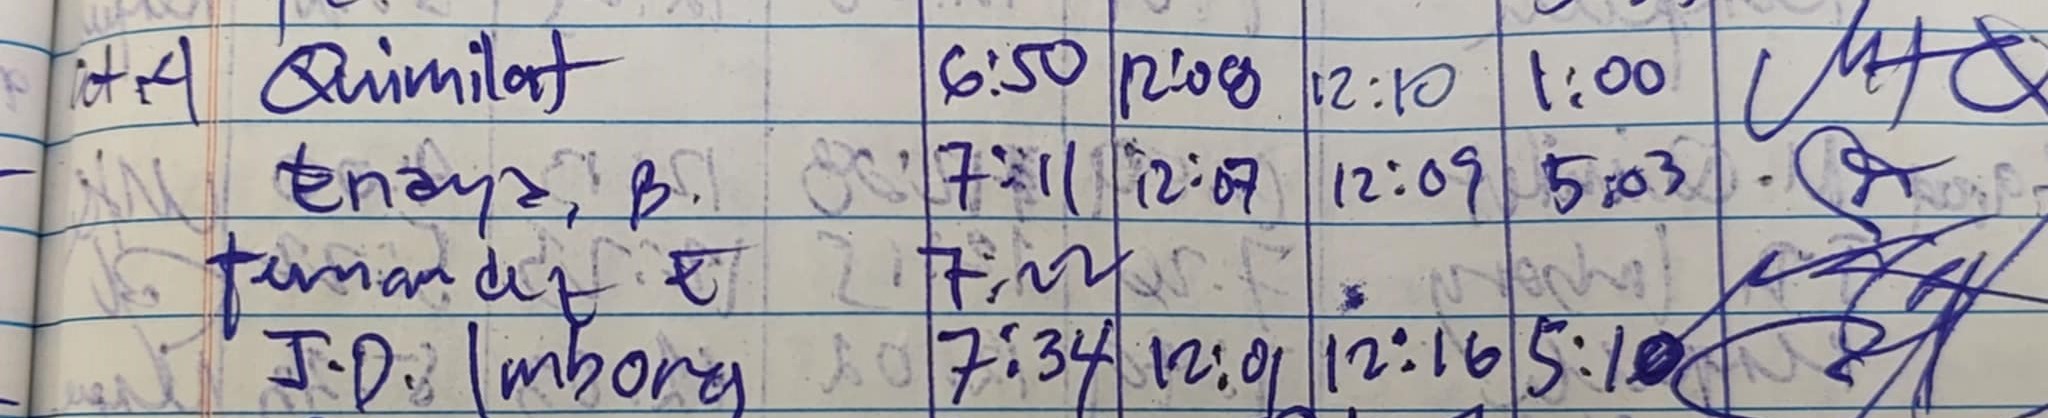 Quimilat 6:50 12:08 12:10 1:00
Enaya, B. 7:11 12:07 12:09 5:03
Fernandez E 7:22
J.D. Imbong 7:34 12:01 12:16 5:10